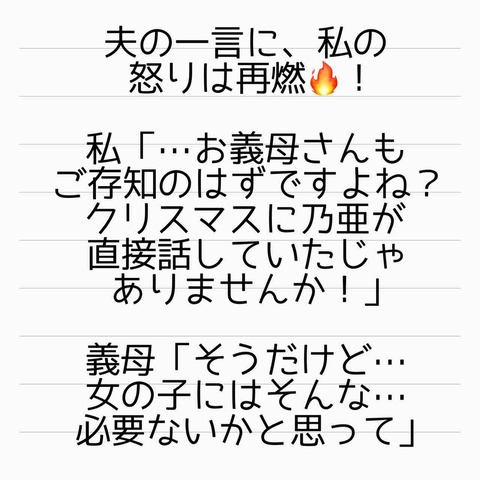 夫の一言に、私の
怒りは再燃🔥！
私「…お義母さんも
ご存知のはずですよね？
クリスマスに乃亜が
直接話していたじゃ
ありませんか！」
義母「そうだけど…
女の子にはそんな…
必要ないかと思って」